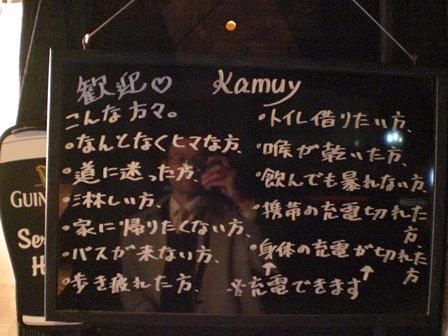 歓迎♡ Kamuy
こんな方々。
・なんとなくヒマな方、
・道に迷った方、
・淋しい方、
・家に帰りたくない方、
・バスが来ない方、
・歩き疲れた方、
・トイレ借りたい方、
・喉が乾いた方、
・飲んでも暴れない方、
・携帯の充電切れた方、
・身体の充電が切れた方、
↑ ↑
※充電できます
GUIN
Ser
H